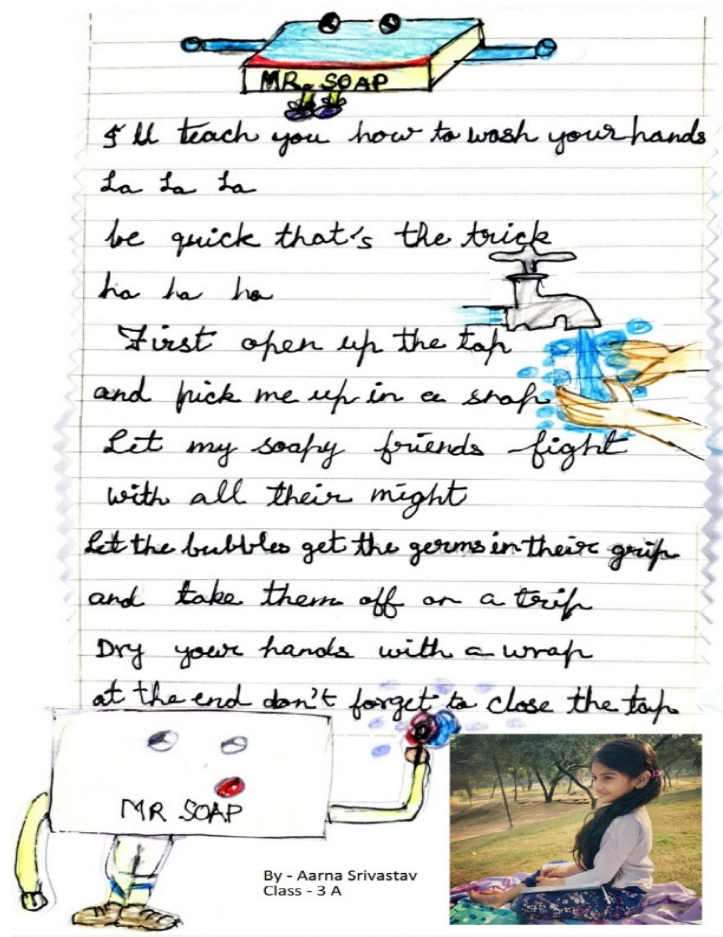 MR. SOAP
I'll teach you how to wash your hands
La La La
be quick that's the trick
ha ha ha
First open up the tap
and pick me up in a snap
Let my soapy friends fight
with all their might
Let the bubbles get the germs in their grip
and take them off on a trip
Dry your hands with a wrap
at the end don't forget to close the tap
MR SOAP
By - Aarna Srivastav
Class - 3 A